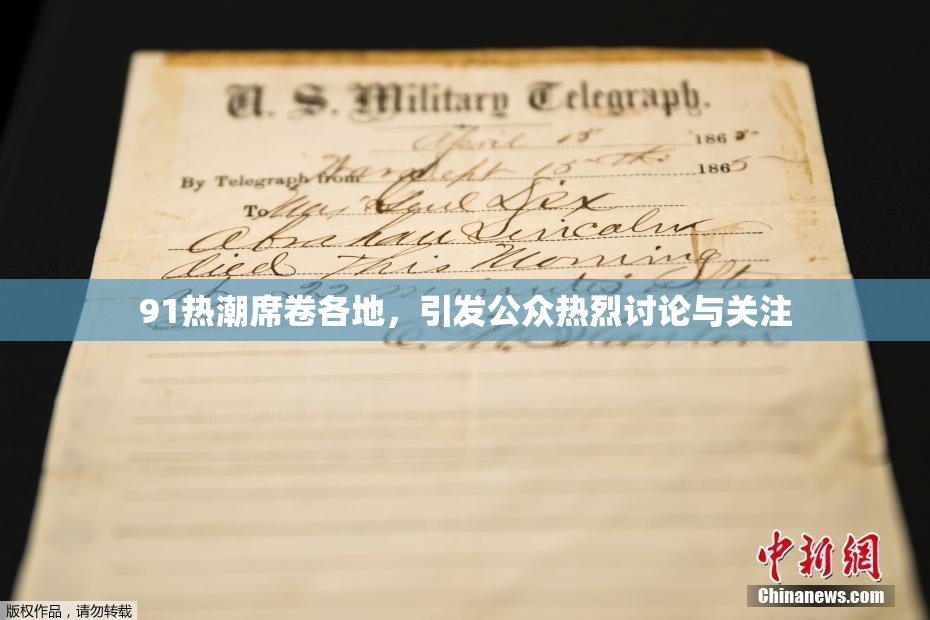 U. S. Military Telegraph.
April 15 1865
By Telegraph from War Dept 15th 1865
To Maj Genl Dix
Abraham Lincoln
died This Morning
22 minutes after
91热潮席卷各地，引发公众热烈讨论与关注
E. M. Stanton
中新網
Chinanews.com
版权作品，请勿转载